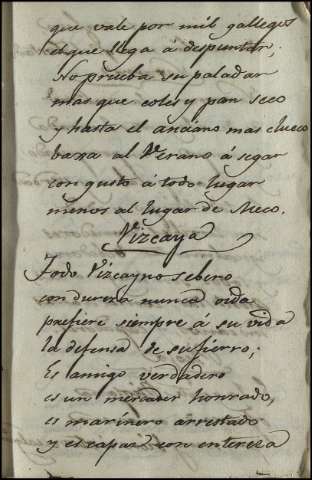 que vale por mil gallegos
el que llega á despuntar;
No prueba su paladar
mas que coles y pan seco
y hasta el anciano mas clueco
baxa al Verano á segar
con gusto á todo lugar
menos al lugar de Meco.
Vizcaya
Todo Vizcayno
con dureza nunca oida
prefiere siempre á su vida
la defensa de su fierro;
Es amigo verdadero
es un mercader honrado,
es marinero arrestado
y es capaz con entereza